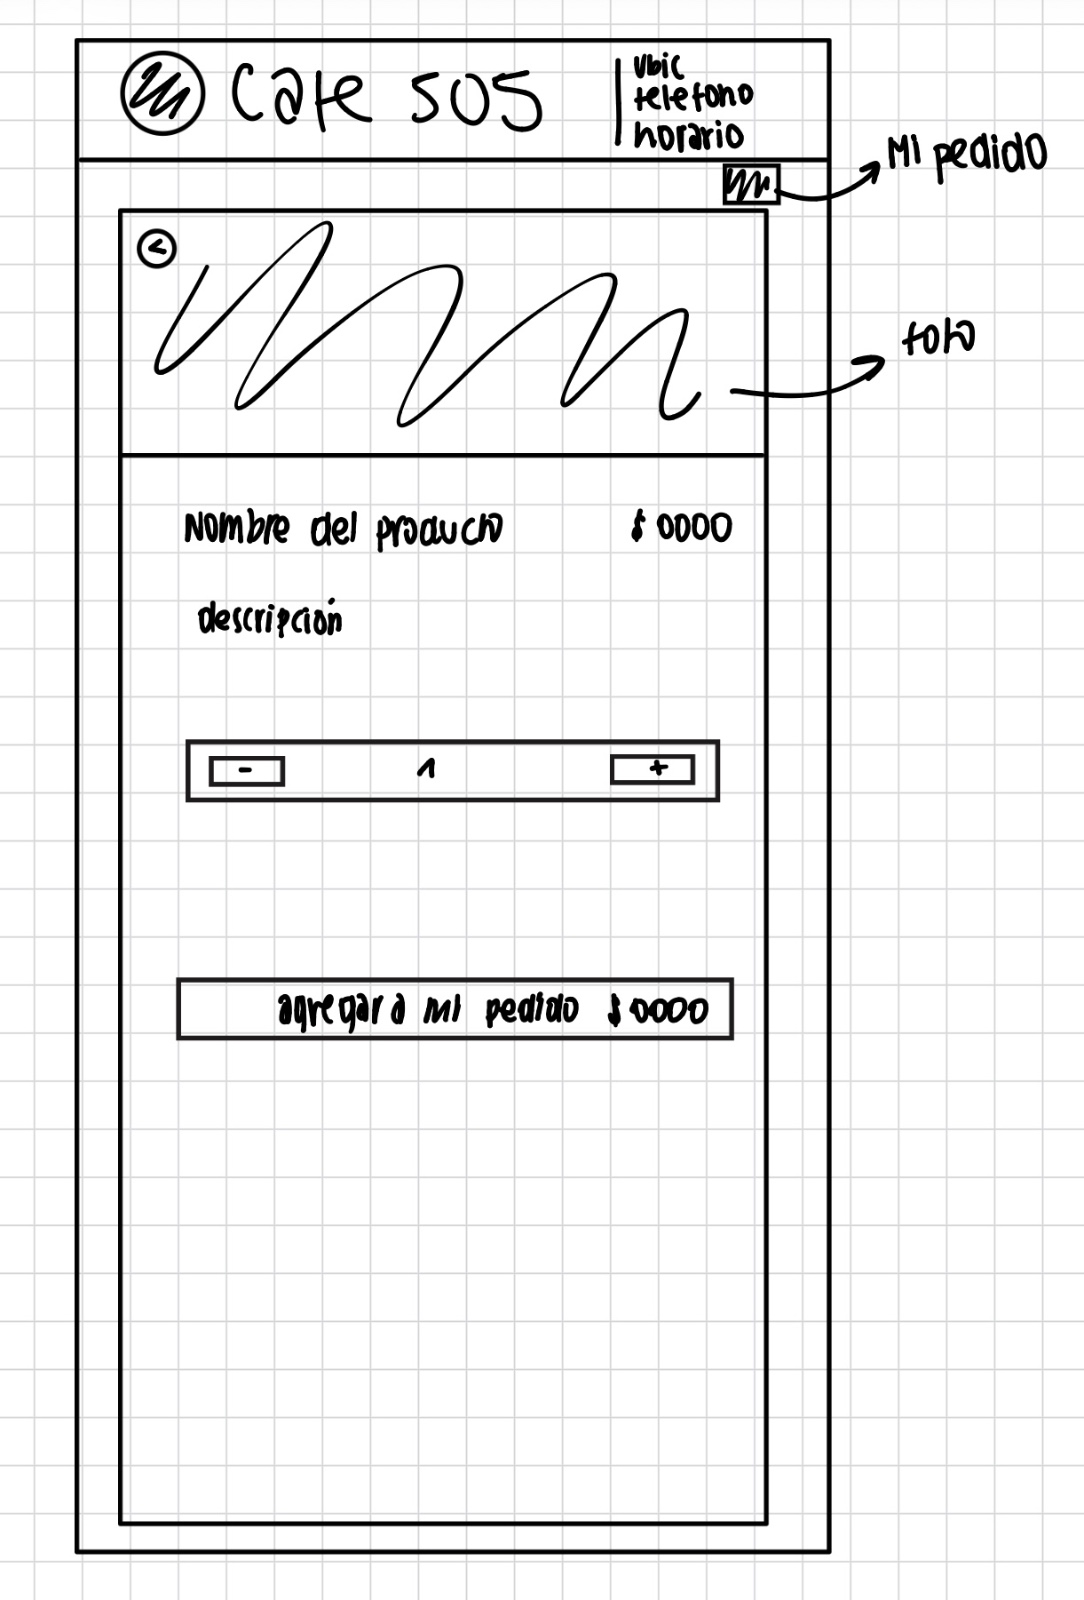 Cafe 505
Ubic
telefono
horario
Mi pedido
<
foto
Nombre del producto $ 0000
descripción
- 1 +
agregar a mi pedido $ 0000